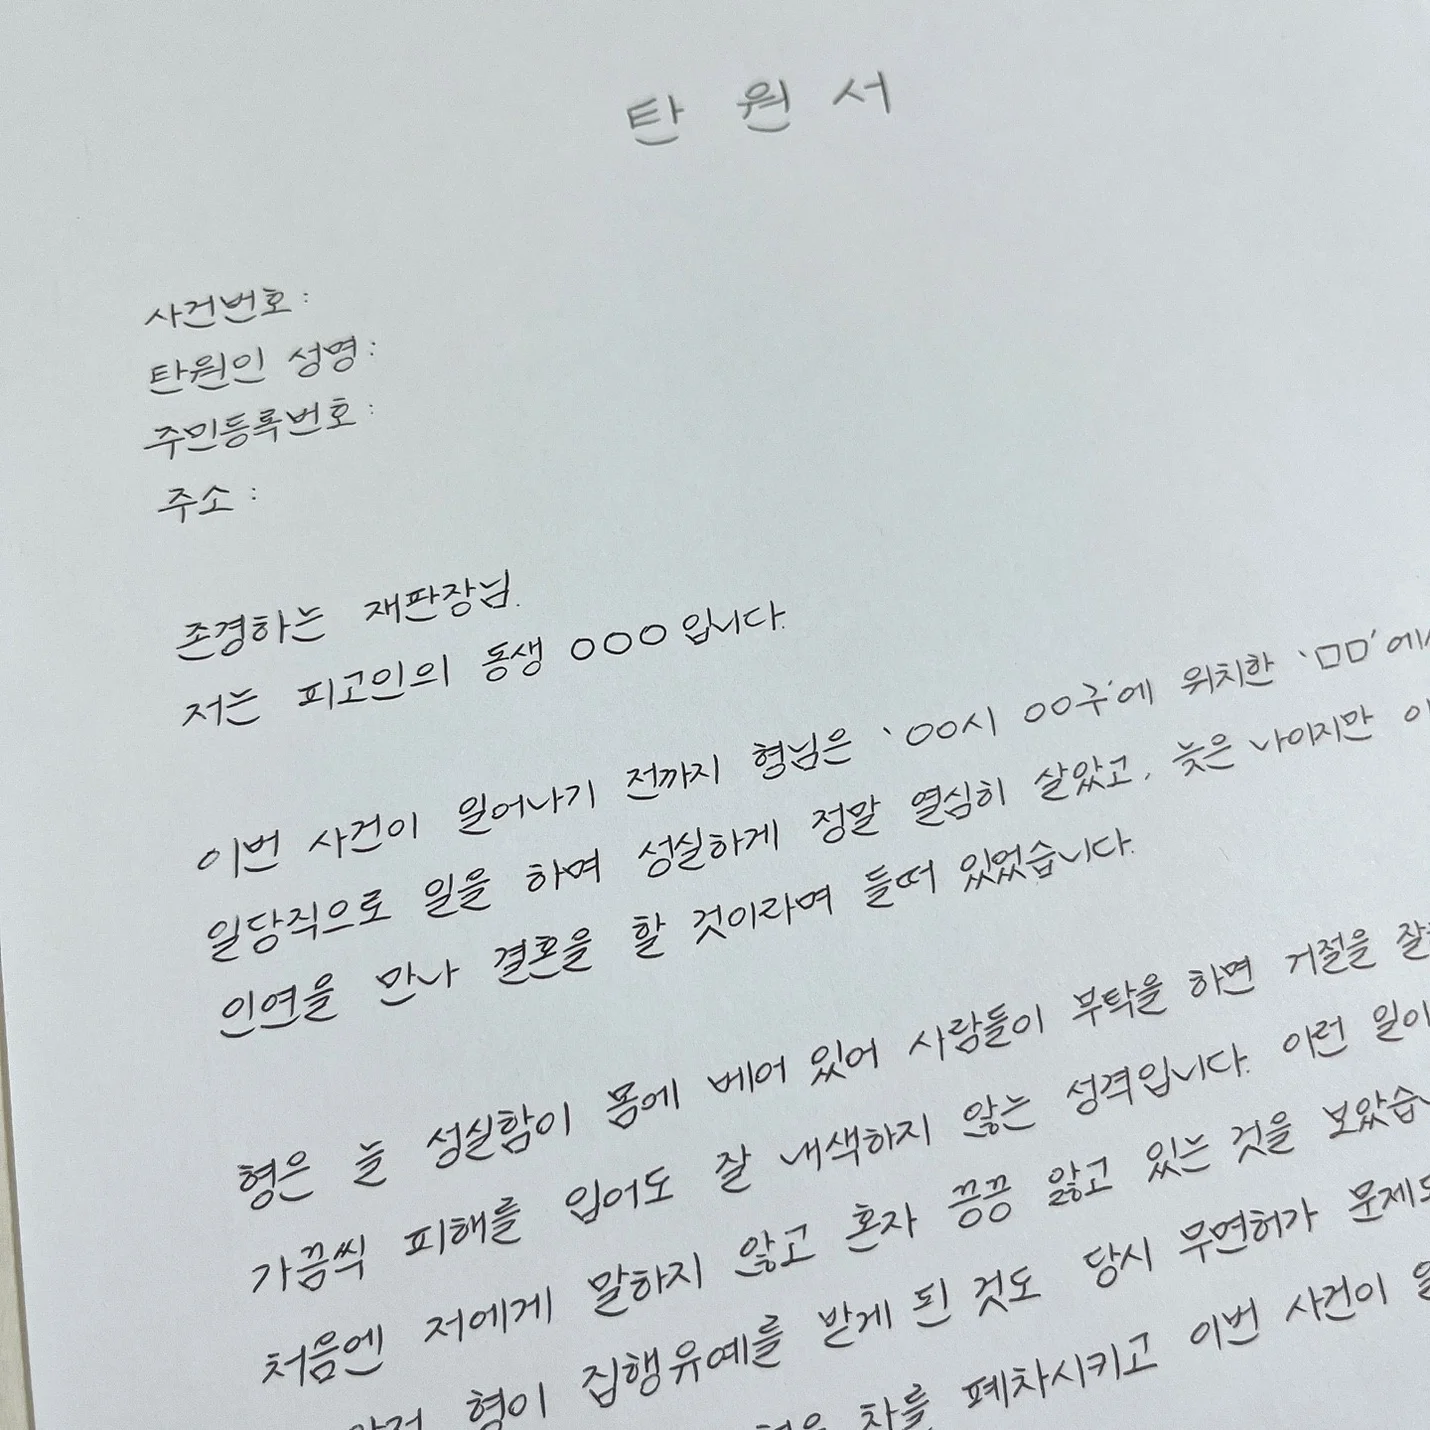 탄 원 서
사건번호 :
탄원인 성명 :
주민등록번호 :
주소 :
존경하는 재판장님.
저는 피고인의 동생 ○○○입니다.
이번 사건이 일어나기 전까지 형님은 '○○시 ○○구'에 위치한 '□□'에서
일당직으로 일을 하며 성실하게 정말 열심히 살았고, 늦은 나이지만
인연을 만나 결혼을 할 것이라며 들떠 있었습니다.
형은 늘 성실함이 몸에 베어 있어 사람들이 부탁을 하면 거절을
가끔씩 피해를 입어도 잘 내색하지 않는 성격입니다. 이런 일이
처음엔 저에게 말하지 않고 혼자 끙끙 앓고 있는 것을 보았습
형이 집행유예를 받게 된 것도 당시 무면허가 문제
차를 폐차시키고 이번 사건이